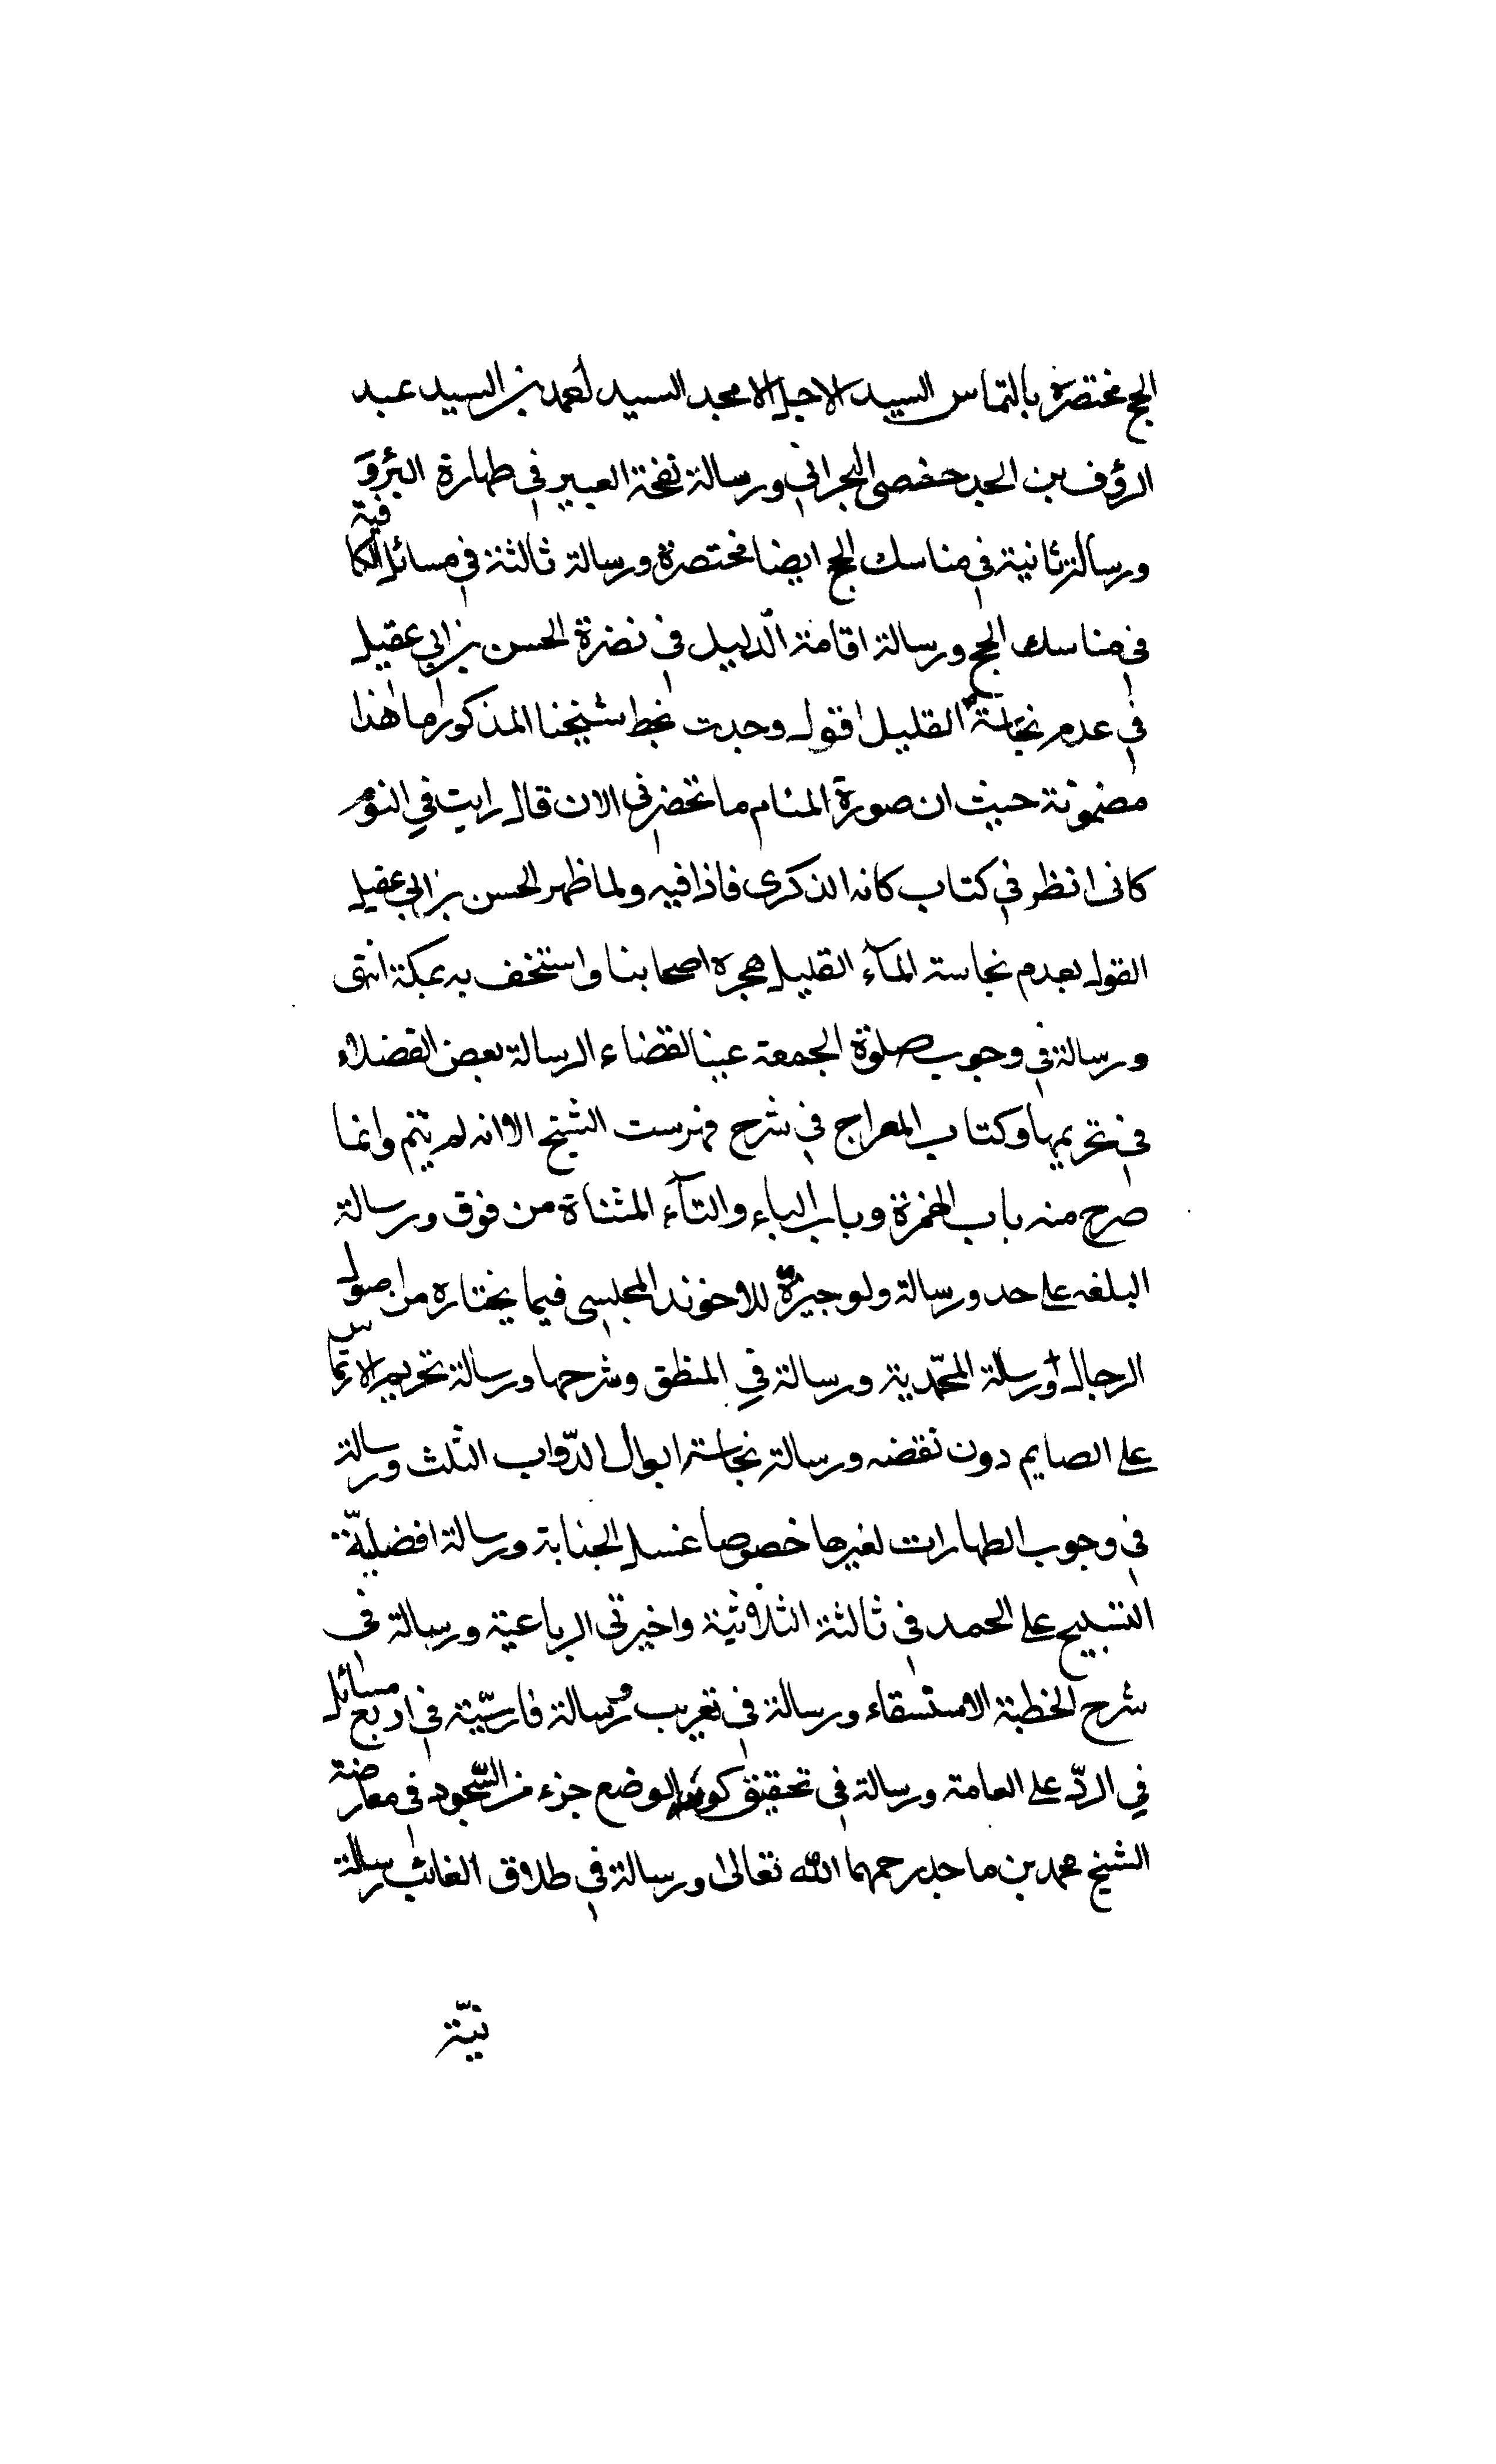 الحج مختصرة بالتماس السيد الاجل الامجد السيد احمد بن السيد عبد
الرؤف بن الجد حفصى البحرانى ورسالة نفحة العبير فى طهارة البئر و
ورسالة ثانية فى مناسك الحج ايضا مختصرة ورسالة ثالثة فى مسائل الكا فية
فى مناسك الحج ورسالة اقامة الدليل فى نضرة الحسن بن ابي عقيل
فى عدم نجاسة القليل اقول وجدت بخط شيخنا المذكور ما هذا
مضمونة حيث ان صورة المنام ما تحضرنى الان قال رايت في النوم
كانى انظر فى كتاب كانه الذكرى فاذا فيه ولما ظهر الحسن بن ابي عقيل
القول بعدم نجاسة المآء القليل هجره اصحابنا واستخف به بمكة انتهى
ورسالة فى وجوب صلوة الجمعة عينا لقضاء الرسالة بعض الفضلاء
فى تحريمها وكتاب المعراج فى شرح فهرست الشيخ الا انه لم يتم وانما
صرح منه باب الهمزة وباب الباء والتآء المثناة من فوق ورسالة
البلغه على حد ورسالة ولوجيزة للاخوند المجلسى فيما يختاره من اصول
الرجال ورسلة المحمّدية ورسالة في المنظق وشرحها ورسالة تحريم الارتما س
على الصايم دون نقضه ورسالة نجاسة ابوال الدّواب الثلث ورسالة
فى وجوب الطهارات لغيرها خصوصا غسل الجنابة ورسالة افضليّة
التسبيح على الحمد فى ثالثة الثلاثية واخيرتى الرباعية ورسالة فى
شرح الخطبة الاستسقاء ورسالة فى تعريب رسالة فارسّية فى اربع مسائل
في الردّ على العامة ورسالة فى تحقيق كون الوضع جزء من السّجود فى معارضة
الشيخ محمد بن ماجد رحمهما الله تعالى ورسالة فى طلاق الغائب رسالة
نيّة